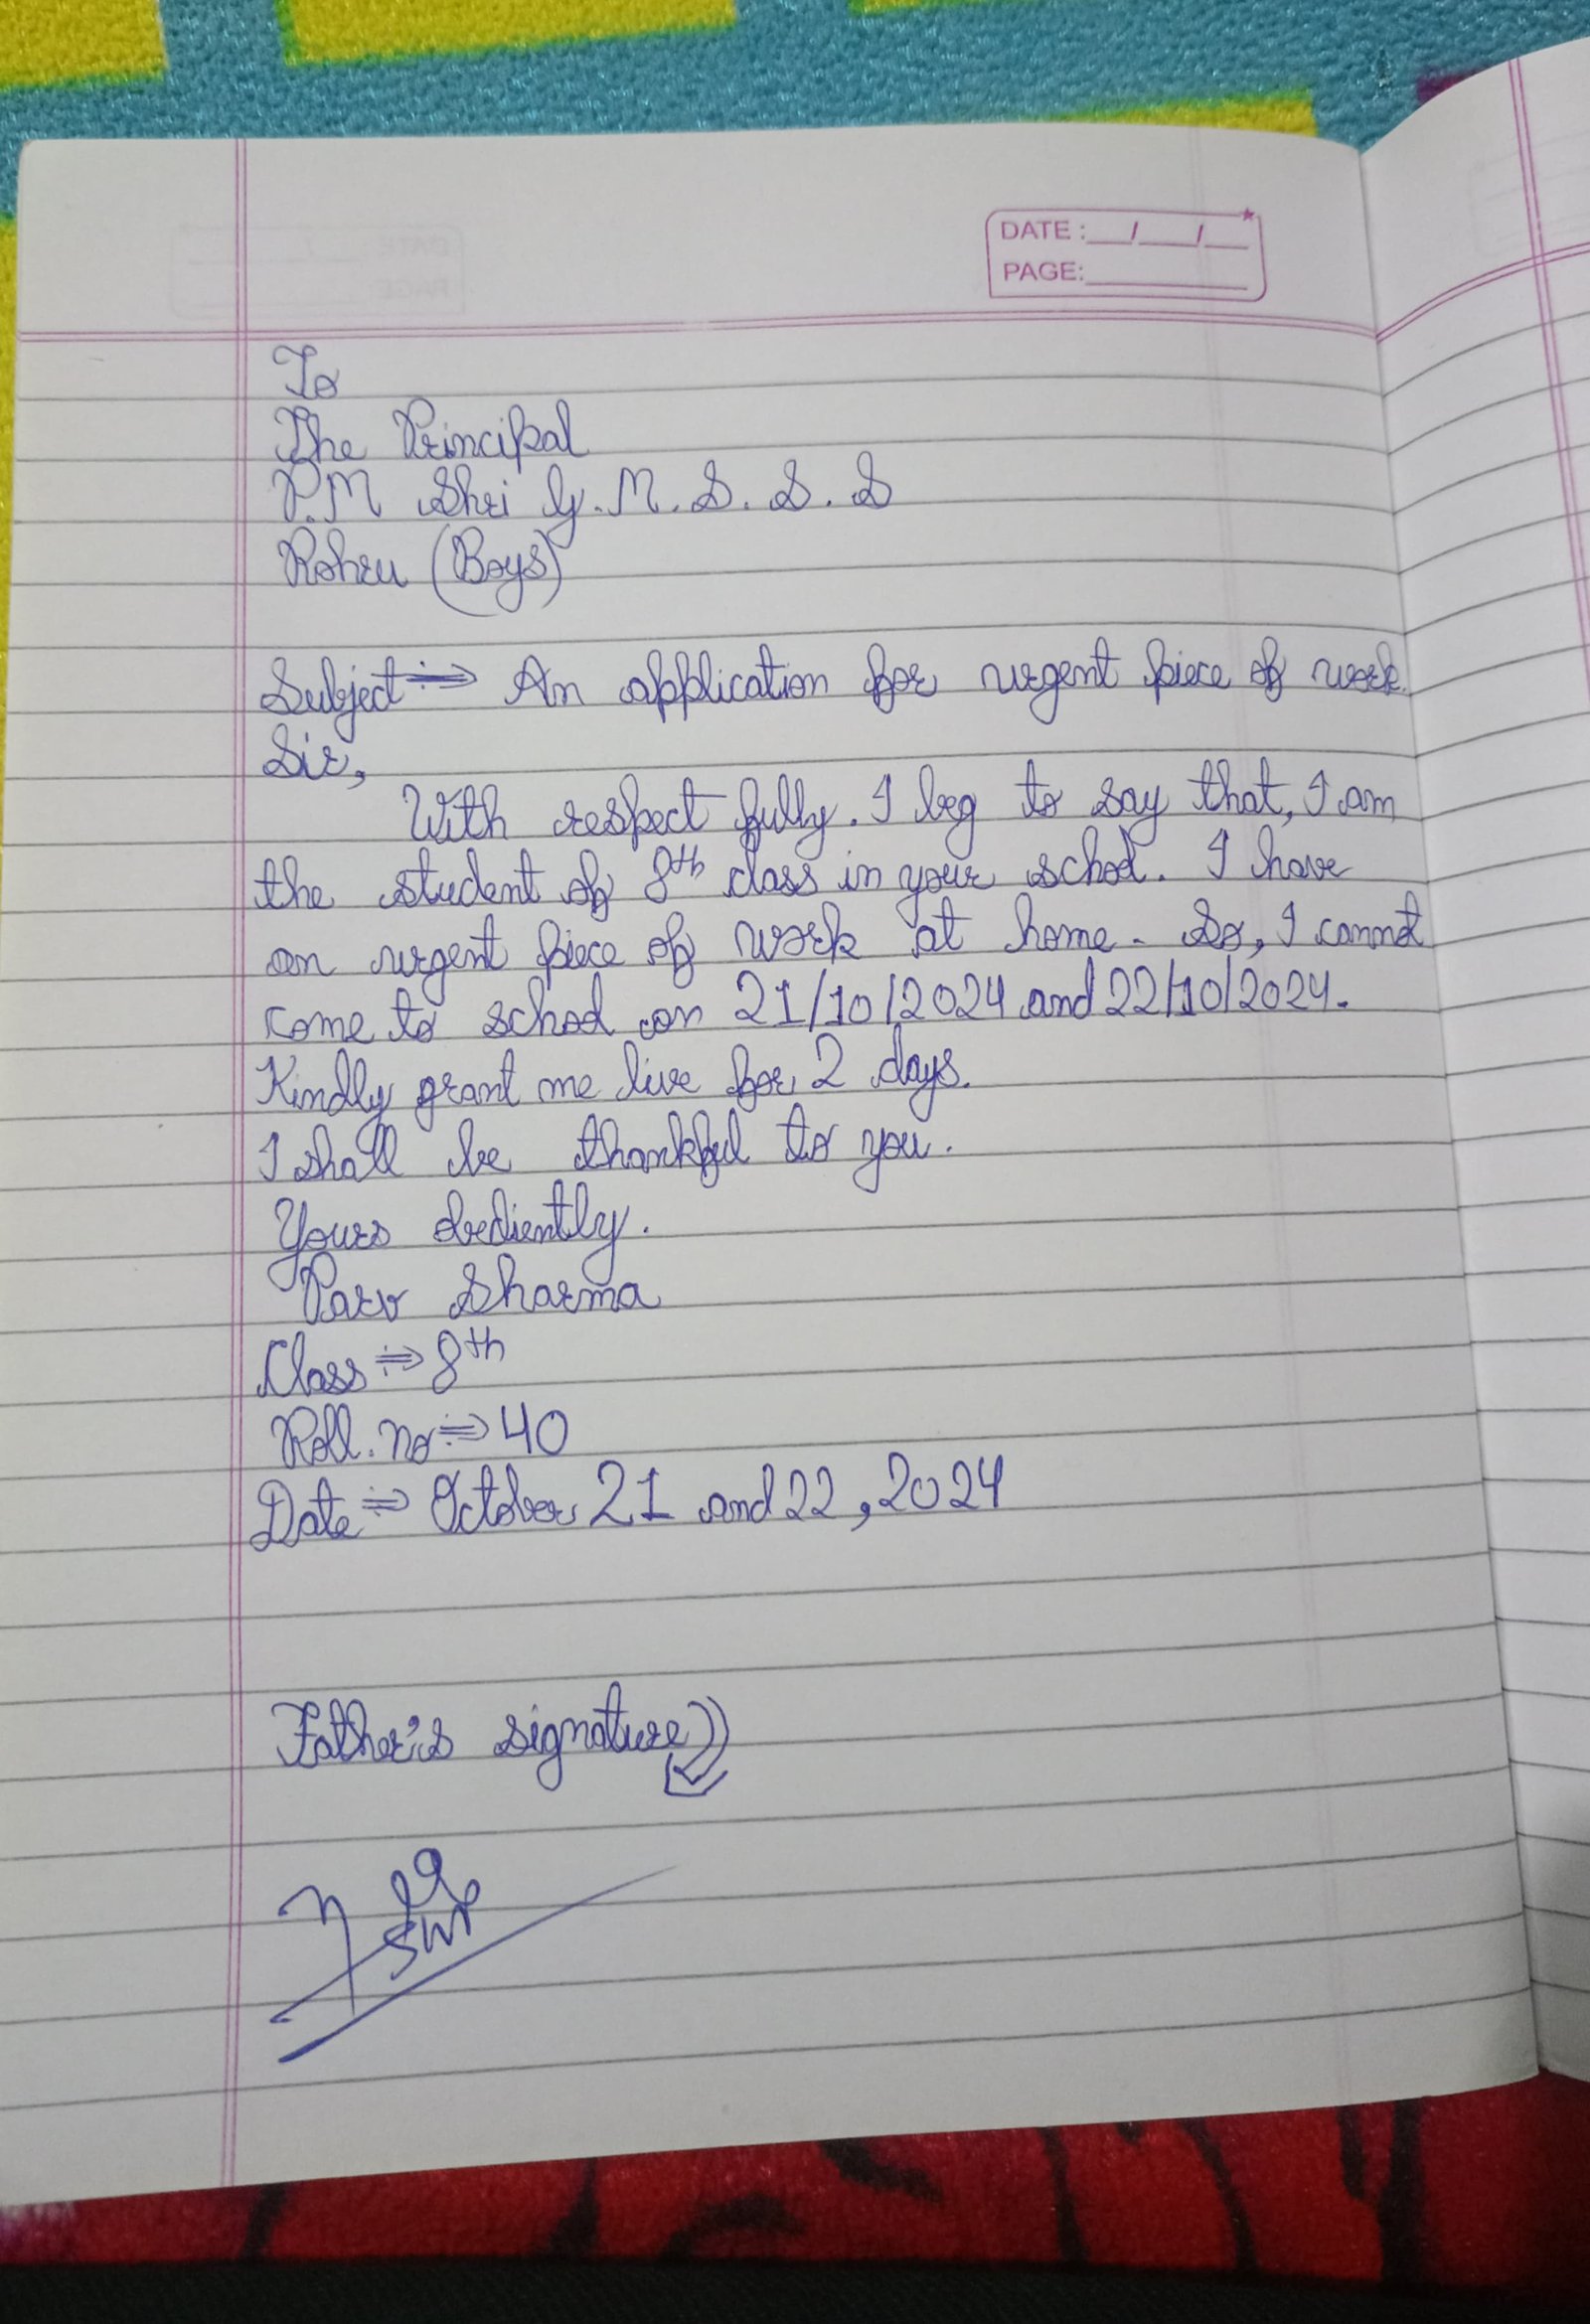 DATE: __/__/__
PAGE:
To
The Principal
P.M Shri G.M.S.S.S
Rohru (Boys)
Subject ÷⇒ An application for urgent piece of work.
Sir,
With respect fully. I beg to say that, I am
the student of 8th class in your school. I have
an urgent piece of work at home. So, I cannot
come to school on 21/10/2024 and 22/10/2024.
Kindly grant me live for 2 days.
I shall be thankful to you.
Yours obediently.
Parv Sharma
Class ÷⇒ 8th
Roll. no ÷⇒ 40
Date ÷⇒ October 21 and 22, 2024
Father's signature